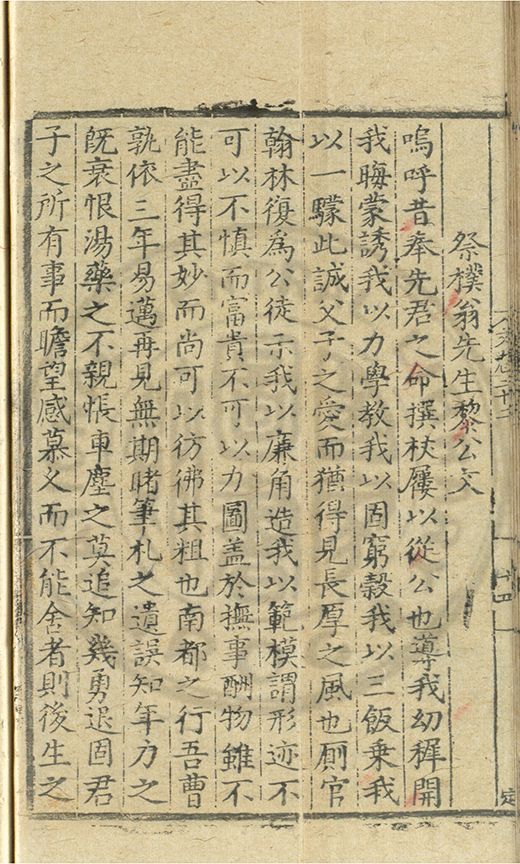 祭樸翁先生黎公文
嗚呼昔奉先君之命撰杖屨以從公也導我幼穉開
我晦蒙誘我以力學教我以固窮穀我以三飯乗我
以一驏此誠父子之愛而猶得見長厚之風也廁官
翰林復爲公徒示我以廉角造我以範模謂形迹不
可以不慎而富貴不可以力圖盖於撫事酬物雖不
能盡得其妙而尚可以彷彿其粗也南都之行吾曹
孰依三年易邁再見無期睹筆札之遺誤知年力之
旣衰恨湯藥之不親悵車塵之莫追知幾勇退固君
子之所有事而瞻望感慕义而不能舍者則後生之